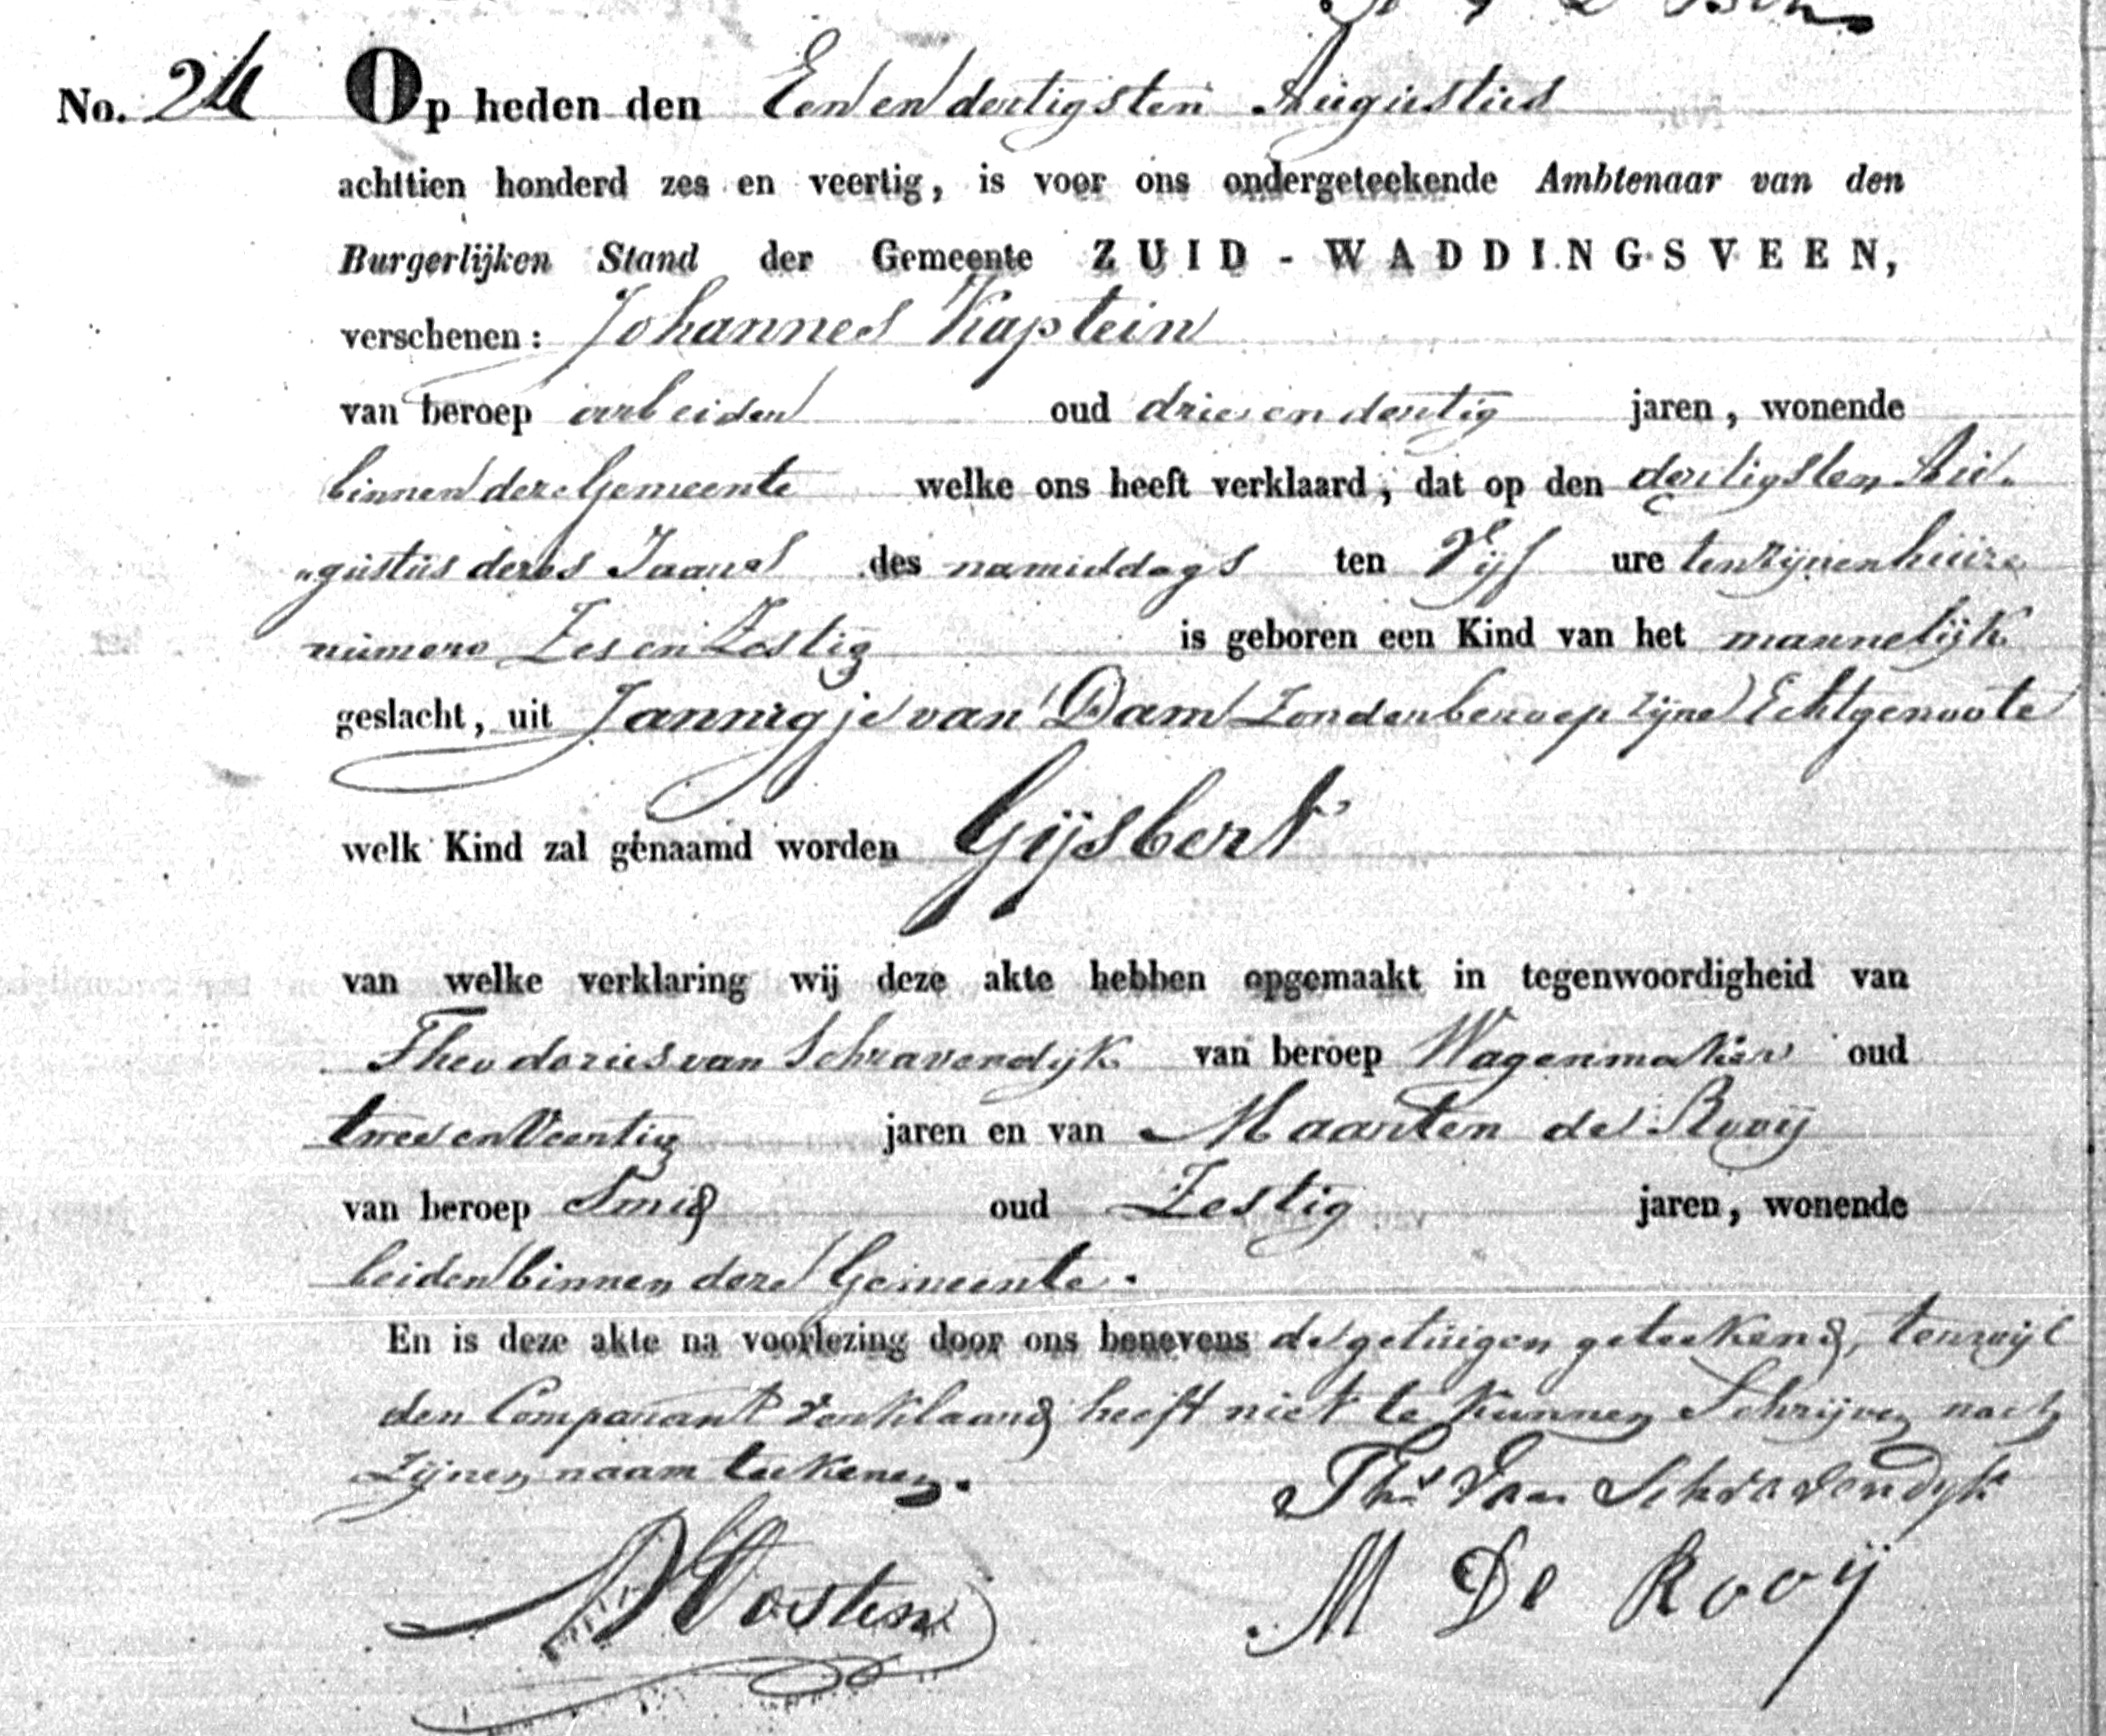 No. 24 Op heden den Een en dertigsten Augustus
achttien honderd zes en veertig, is voor ons ondergeteekende Ambtenaar van den
Burgerlijken Stand der Gemeente ZUID-WADDINGSVEEN,
verschenen: Johannes Kaptein
van beroep arbeider oud drie en dertig jaren, wonende
binnen deze Gemeente welke ons heeft verklaard, dat op den dertigsten Au-
"gustus dezes Jaars des namiddags ten Vijf ure ten zijnen huize
numero Zes en Zestig is geboren een Kind van het mannelijk
geslacht, uit Jannigje van Dam Zonder beroep zijne Echtgenoote
welk Kind zal genaamd worden Gijsbert
van welke verklaring wij deze akte hebben opgemaakt in tegenwoordigheid van
Theodorus van Schravendijk van beroep Wagenmaker oud
twee en Veertig jaren en van Maarten de Rooij
van beroep Smid oud Zestig jaren, wonende
beiden binnen deze Gemeente.
En is deze akte na voorlezing door ons benevens de getuigen geteekend, terwijl
den Comparant verklaard heeft niet te kunnen Schrijven noch
Zijnen naam teekenen.
Ths Van Schravendijk
M De Rooij